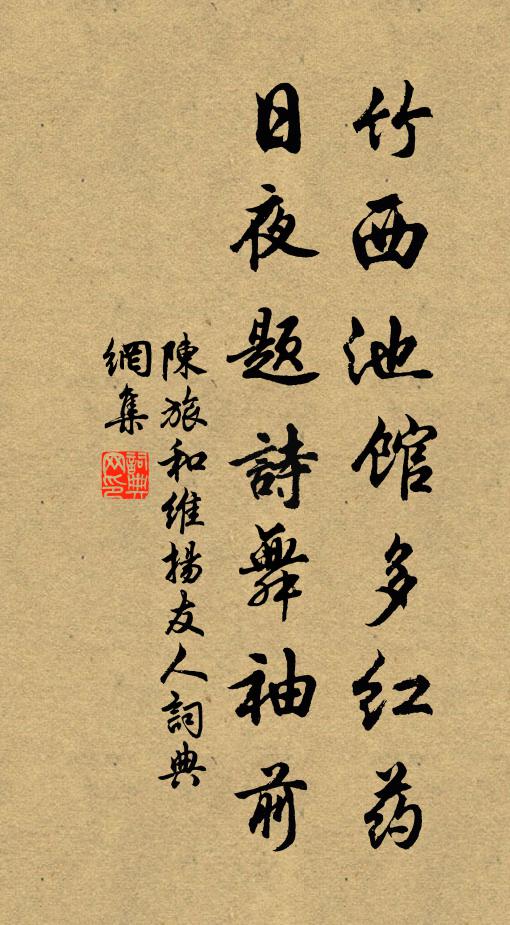 竹西池馆多红药
日夜题詩舞袖前
陳旅和維揚友人詞典
網集
詞典
网印